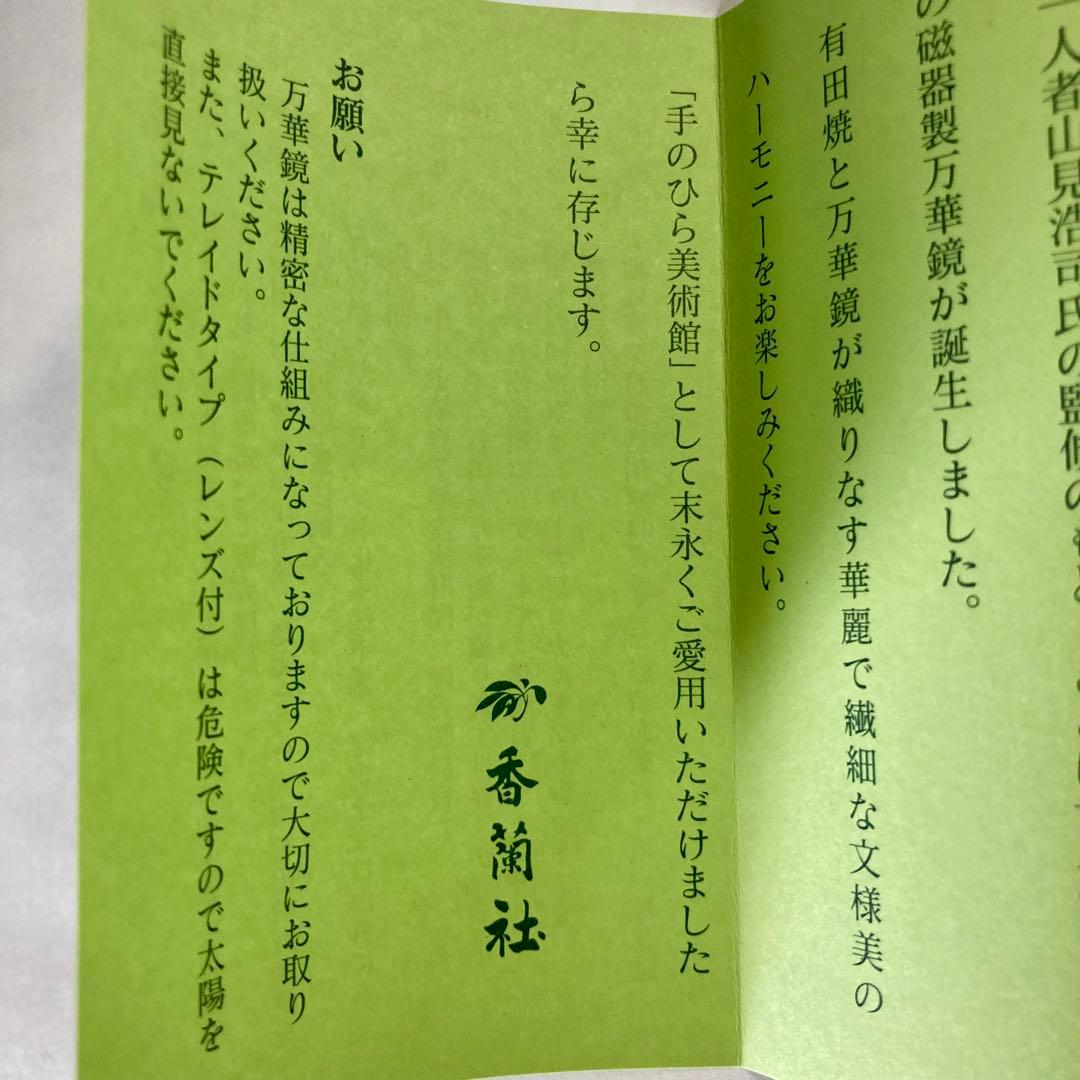 一人者山見浩司氏の監修のもと
の磁器製万華鏡が誕生しました。
有田焼と万華鏡が織りなす華麗で繊細な文様美の
ハーモニーをお楽しみください。
「手のひら美術館」として末永くご愛用いただけました
ら幸に存じます。
香蘭社
お願い
万華鏡は精密な仕組みになっておりますので大切にお取り
扱いください。
また、テレイドタイプ（レンズ付）は危険ですので太陽を
直接見ないでください。